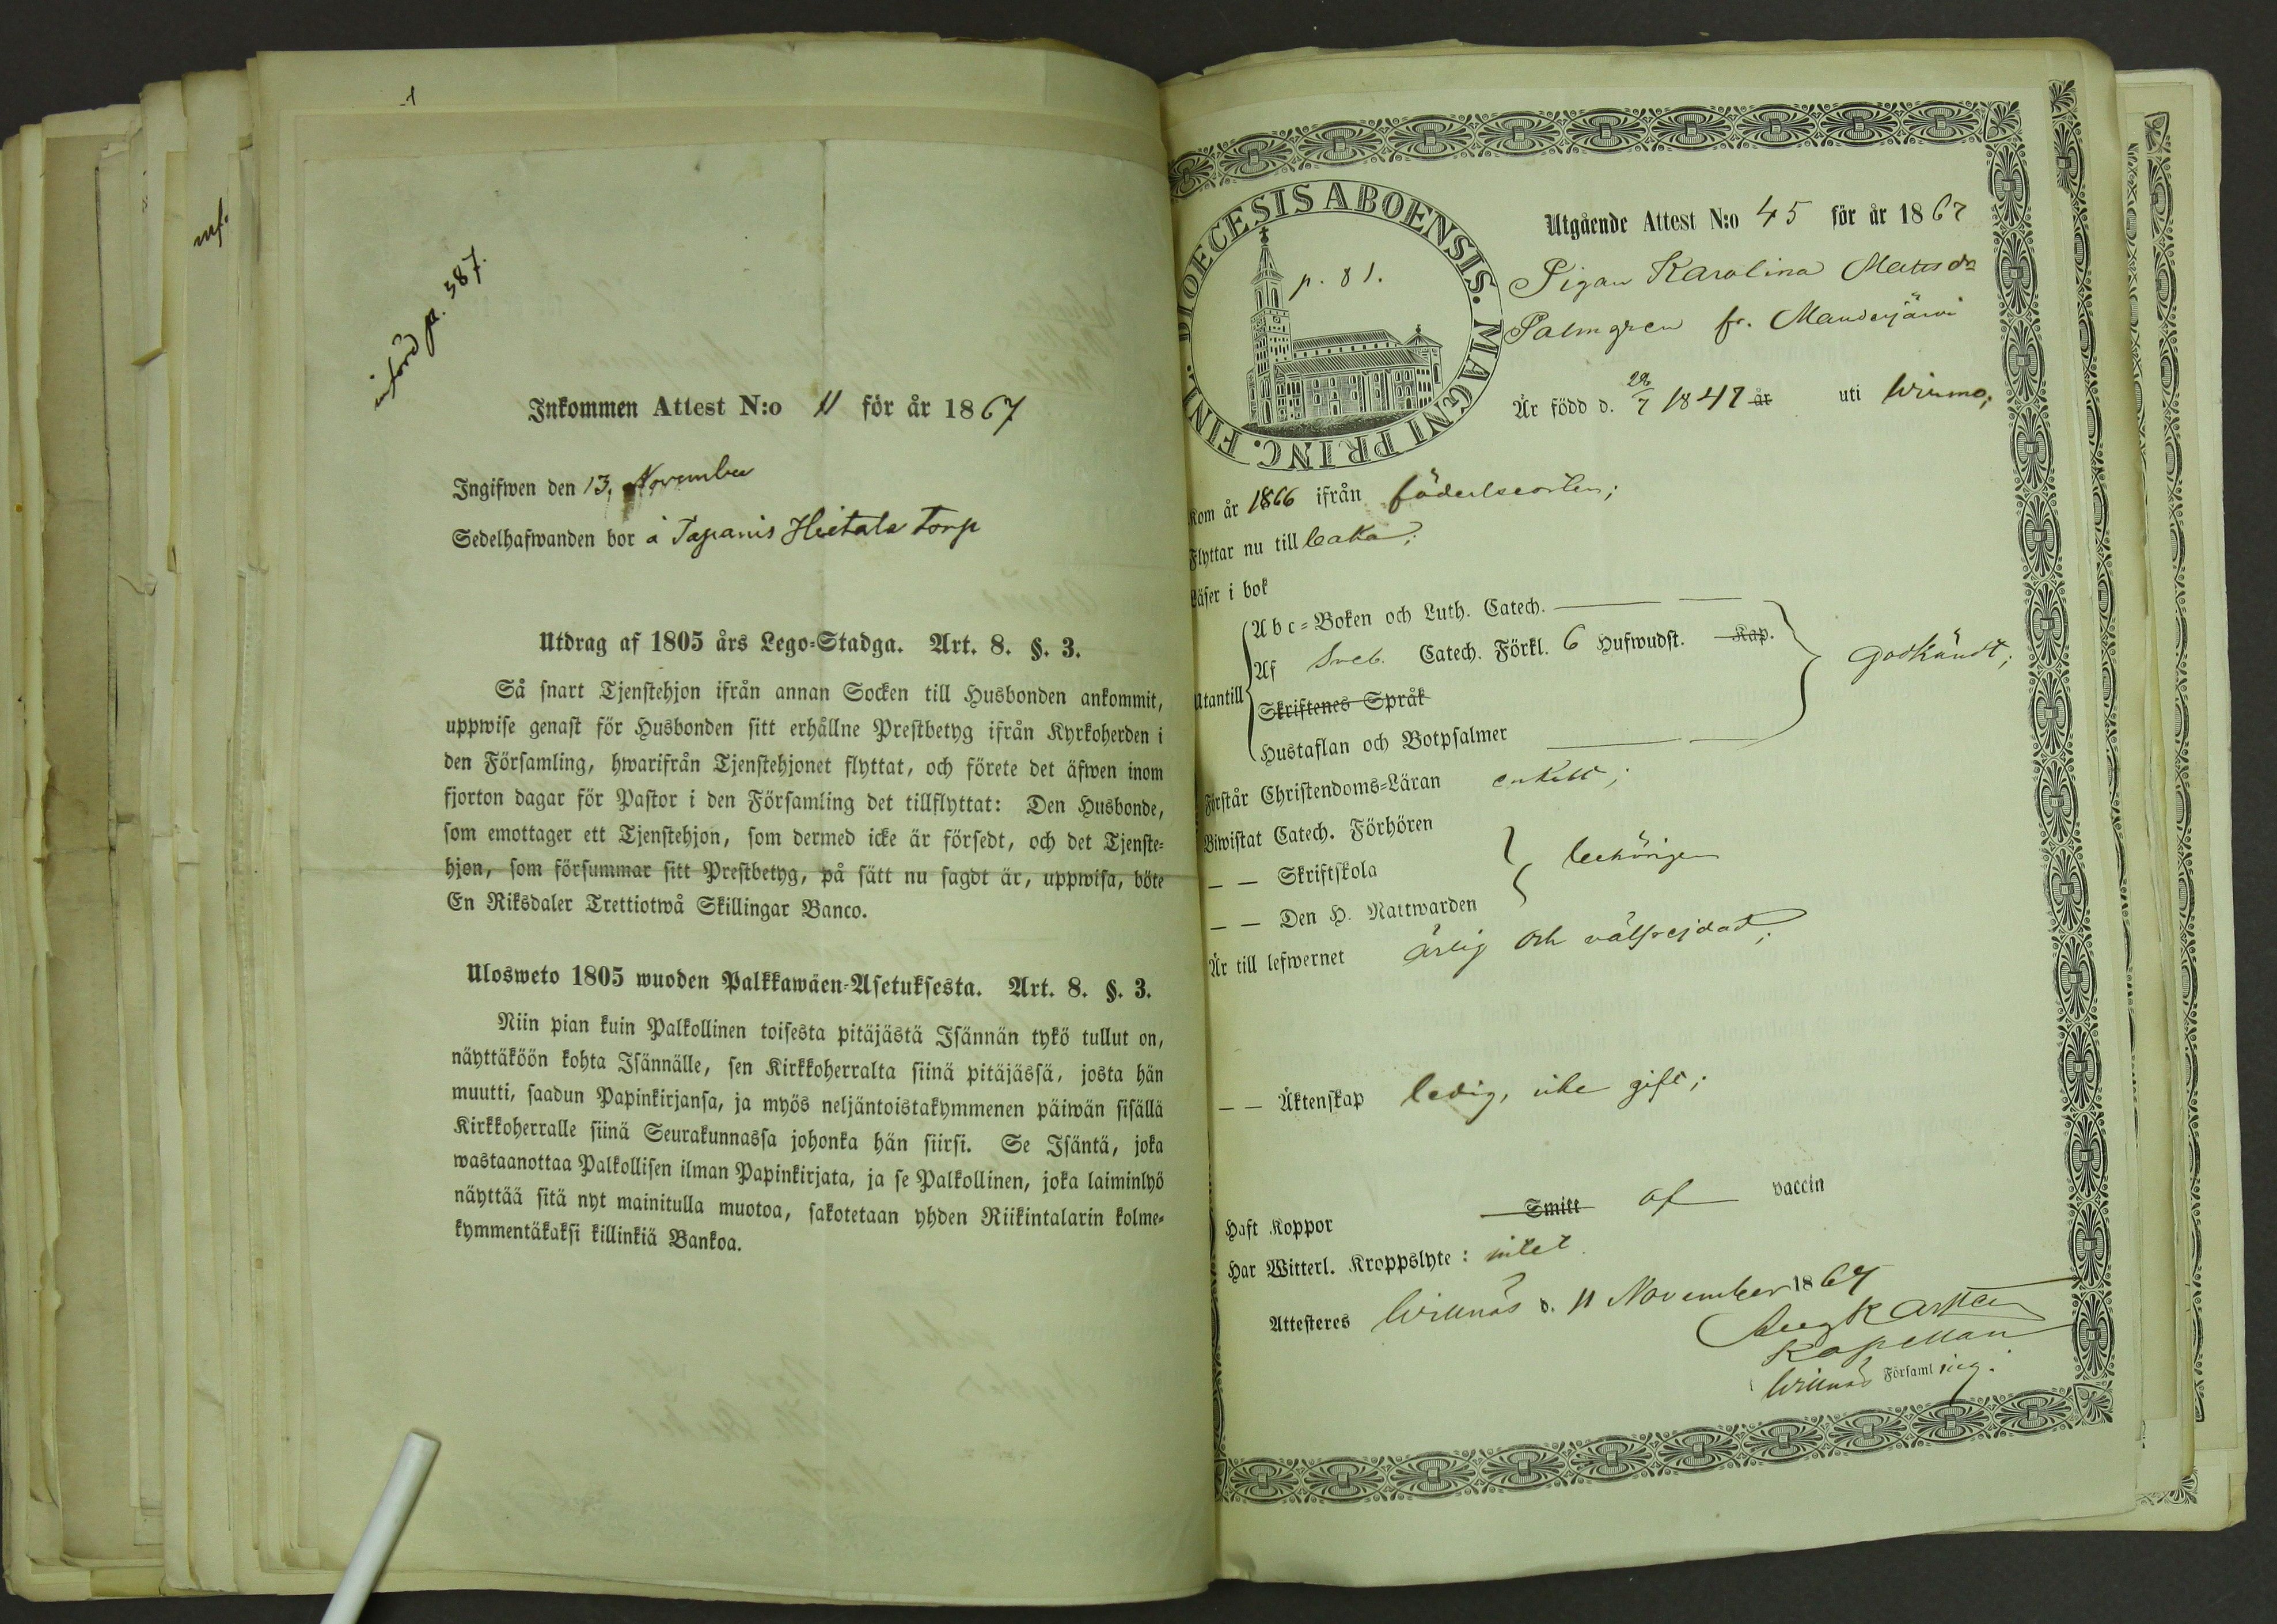 införd p. 387.
Inkommen Attest N:o 11 för år 1867
Ingifwen den 13. November
Sedelhafwanden bor å Tapanis Hietala torp
Utdrag af 1805 års Lego-Stadga. Art. 8. §. 3.
Så snart Tjenstehjon ifrån annan Socken till Husbonden ankommit,
uppwise genast för Husbonden sitt erhållne Prestbetyg ifrån Kyrkoherden i
den Församling, hwarifrån Tjenstehjonet flyttat, och förete det äfwen inom
fjorton dagar för Pastor i den Församling det tillflyttat: Den Husbonde,
som emottager ett Tjenstehjon, som dermed icke är försedt, och det Tjenste-
hjon, som försummar sitt Prestbetyg, på sätt nu sagdt är, uppwisa, böte
En Riksdaler Trettiotwå Skillingar Banco.
Ulosweto 1805 wuoden Palkkawäen-Asetuksesta. Art. 8. §. 3.
Niin pian kuin Palkollinen toisesta pitäjästä Isännän tykö tullut on,
näyttäköön kohta Isännälle, sen Kirkkoherralta siinä pitäjässä, josta hän
muutti, saadun Papinkirjansa, ja myös neljäntoistakymmenen päiwän sisällä
Kirkkoherralle siinä Seurakunnassa johonka hän siirsi. Se Isäntä, joka
wastaanottaa Palkollisen ilman Papinkirjata, ja se Palkollinen, joka laiminlyö
näyttää sitä nyt mainitulla muotoa, sakotetaan yhden Riikintalarin kolme-
kymmentäkaksi killinkiä Bankoa.
DIOECESIS ABOENSIS. MAGNI PRINC. FINL.
p. 81.
Utgående Attest N:o 45 för år 1867
Pigan Karolina Mattsdr
Palmgren fr. Mauderjärvi
Är född d. 28/7 1847 år uti Wirmo;
Kom år 1866 ifrån födelseorten;
Flyttar nu till
Läser i bok
Utantill
Abc-Boken och Luth. Catech.
Af Sveb. Catech. Förkl. 6 Hufwudst. Kap.
godkändt;
Skriftenes Språk
Hustaflan och Botpsalmer
Förstår Christendoms-Läran enkelt;
Biwistat Catech. Förhören
— — Skriftskola
behörigen
— — Den H. Nattwarden
Är till lefwernet ärlig och välfrejdad;
— — Äktenskap ledig, icke gift;
Haft Koppor Smitt af vaccin
Har Witterl. Kroppslyte: intet.
Attesteres Willnäs d. 11 November 1867
Kapellan
Willnäs Församling.